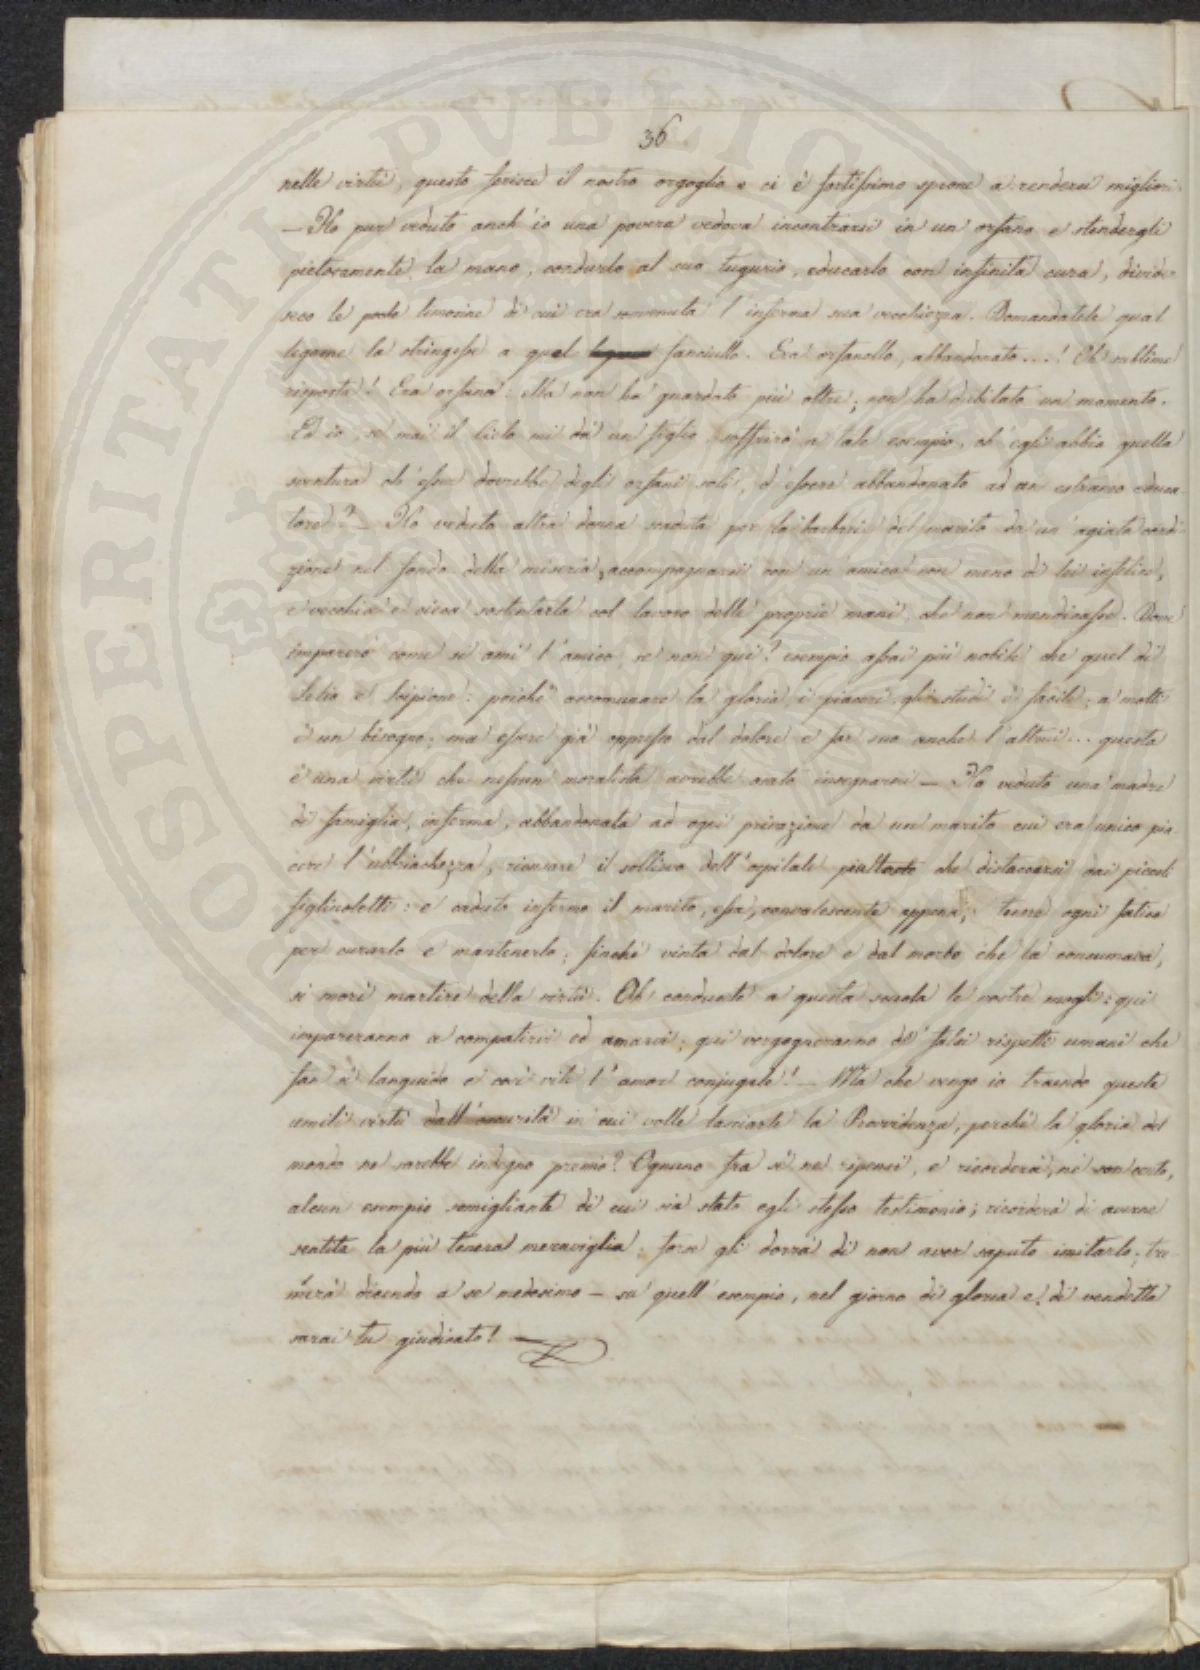 36
nelle virtù, questo ferisce il nostro orgoglio e ci è fortissimo sprone a renderci migliori.
— Ho pur veduto anch'io una povera vedova incontrarsi in un orfano e stendergli
pietosamente la mano, condurlo al suo tugurio, educarlo con infinita cura, divider
seco le poche limosine di cui era sovvenuta l'inferma sua vecchiezza. Domandatele qual
legame la stringesse a quel fanciullo. Era orfanello, abbandonato...! Oh sublime
risposta! Era orfano: ella non ha guardato più oltre; non ha dubitato un momento.
Ed io, se mai il Cielo mi dà un figlio, soffrirò a tale esempio, ch'egli abbia quella
sventura ch'esser dovrebbe degli orfani soli, d'essere abbandonato ad un estraneo educa-
tore? — Ho veduto altra donna caduta per la barbarie del marito da un'agiata condi-
zione nel fondo della miseria, accompagnarsi con un'amica non meno di lei infelice,
e vecchia e cieca sostentarla col lavoro delle proprie mani, che non mendicasse. Dove
imparerò come si ami l'amico, se non qui? esempio assai più nobile che quel di
Lelio e Scipione: poiché accomunare la gloria, i piaceri, gli studi è facile; a molti
è un bisogno; ma essere già oppresso dal dolore e far suo anche l'altrui... questa
è una virtù che nessun moralista avrebbe osato insegnarvi — Ho veduto una madre
di famiglia, inferma, abbandonata ad ogni privazione da un marito cui era unico pia-
cere l'ubbriachezza, ricusare il sollievo dell'ospitale piuttosto che distaccarsi dai piccoli
figliuoletti: e caduto infermo il marito, essa, convalescente appena, ogni fatica
per curarlo e mantenerlo; finché vinta dal dolore e dal morbo che la consumava,
si morì martire della virtù. Oh conducete a questa scuola le vostre mogli: qui
impareranno a compatirvi ed amarvi; qui vergogneranno de' falsi rispetti umani che
fan sì languido e così vile l'amor conjugale! — Ma che vengo io traendo queste
umili virtù dall'oscurità in cui volle lasciarle la Provvidenza, perché la gloria del
mondo ne sarebbe indegno premio? Ognuno fra sé ne ripensi, e ricorderà, ne son certo,
alcun esempio somigliante di cui sia stato egli stesso testimonio; ricorderà di averne
sentita la più tenera meraviglia: forse gli dorrà di non aver saputo imitarlo; tre-
merà dicendo a se medesimo — su quell'esempio, nel giorno di gloria e di vendetta
sarai tu giudicato! —
PROSPERITATI PVBLICAE